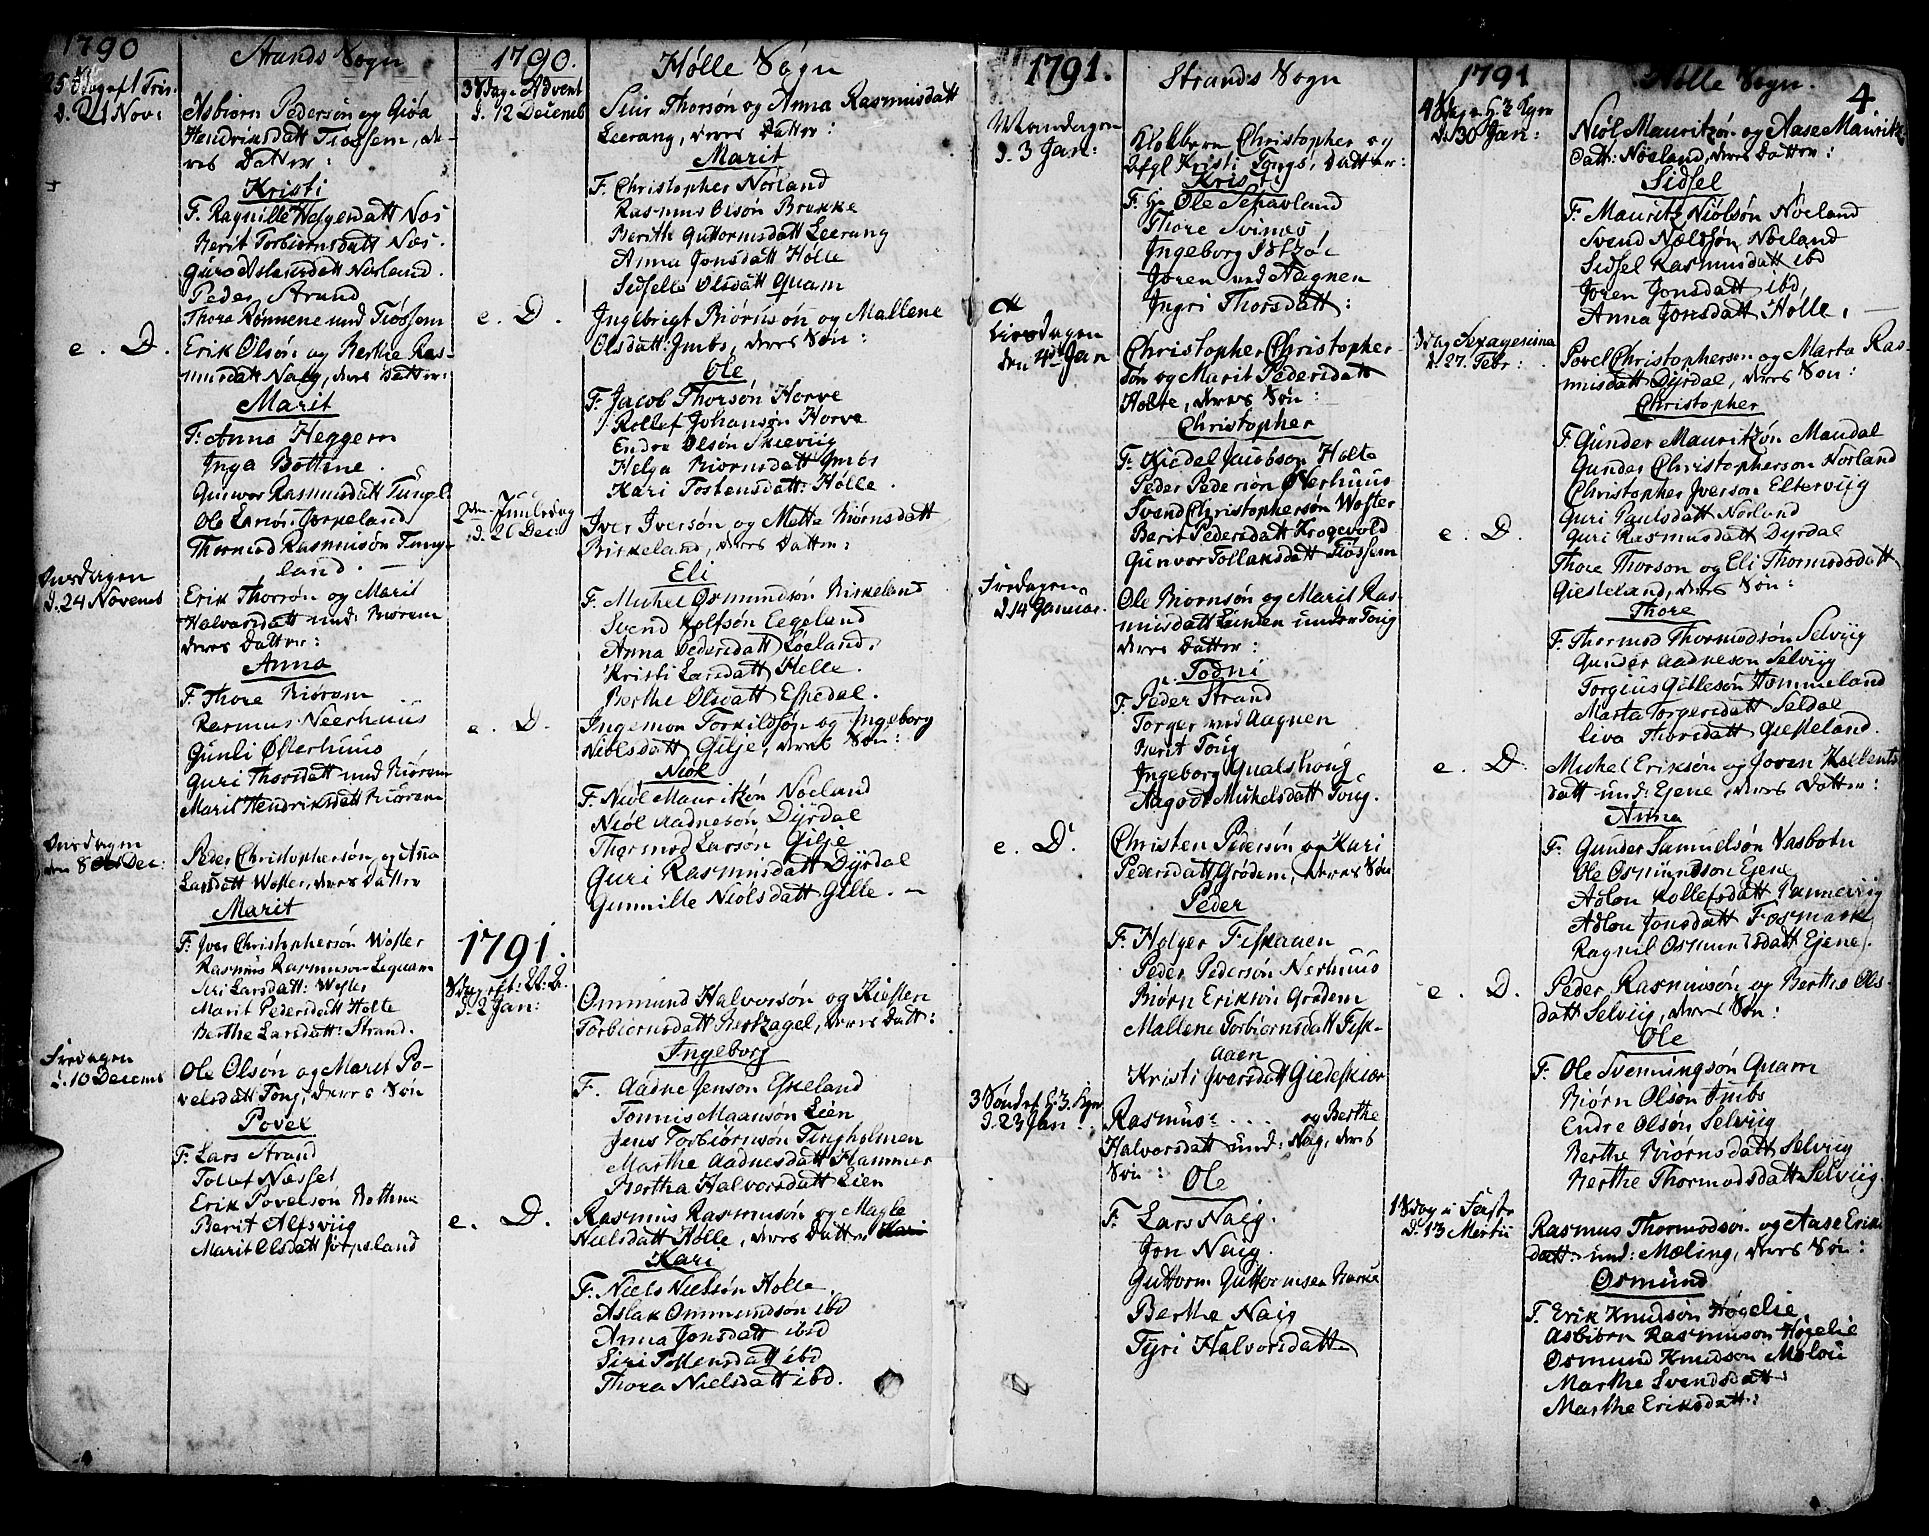 1790
Strands Sogn
25 S. Dag eft Trin.
d. 21 Nov:
Asbiørn Pedersøn og Giøa
Hendriksdatt Tiøssem, de-
res Datter:
Kristi
F. Ragnille Helgesdatt Næs
Berit Torbiørnsdatt Næs.
Guro Aslaksdatt Norland.
Peder Strand
Thora Rønnene und Tiøssem
e. D.
Erik Olsøn og Berthe Ras-
musdatt Naeg, deres Datter:
Marit
F. Anna Heggem
Inga Bottene.
Gunvor Rasmusdatt Tungl.
Ole Larsøn Jørpeland
Thormod Rasmusøn Tung-
land.
Onsdagen
d. 24 Novemb
Erik Thorsøn og Marit
Halvorsdatt und: Biørem
deres Datter:
Anna
F. Thore Biørem
Rasmus Neerhuus
Gunli Østerhuus
Guri Thorsdatt und Biørem
Marit Hendriksdatt Biørem
Onsdagen
den 8 Dec:
Peder Christophersøn og Ana
Larsdatt Woster, deres Datter
Marit
F. Iver Christophersøn Woster
Rasmus Rasmusøn Leqvam
Siri Larsdatt: Woster
Marit Pedersdatt Holte
Berthe Larsdatt: Strand.
Fredagen
d. 10 Decemb
Ole Olsøn og Marit Po-
velsdatt Tong, deres Søn
Povel
F. Lars Strand
Tollef Næsset
Erik Povelsøn Bothne
Berit Alfsviig
Marit Olsdatt Jørpeland
1790.
Hølle Sogn
3 S. Dag i Advent
d. 12 Decemb
Siur Thorsøn og Anna Rasmusdatt
Leerang, deres Datter:
Marit
F. Christopher Norland
Rasmus Olsøn Brekke
Berithe Guttormsdatt Leerang
Anna Jonsdatt Hølle
Sidselle Olsdatt Quam
e. D.
Ingebrigt Biørnsøn og Mallene
Olsdatt: Imbs, deres Søn:
Ole
F. Jacob Thorsøn Horve
Rollef Johansøn Horve
Endre Olsøn Skieviig
Helga Biørnsdatt Imbs
Kari Tostensdatt: Hølle.
2den Juuledag
d. 26 Dec:
Iver Iversøn og Mette Biørnsdatt
Birkeland, deres Datter:
Eli
F. Michel Osmundsøn Birkeland
Svend Rolfsøn Eegeland
Anna Pedersdatt Løeland,
Kristi Larsdatt Helle.
Berthe Olsdatt Espedal.
e. D.
Ingemon Torkildsøn og Ingeborg
Niølsdatt Gilje, deres Søn:
Niøl
F. Niøl Mauritzøn Nøeland
Niøl Aadnesøn Dyrdal
Thormod Larsøn Gilje
Guri Rasmusdatt Dyrdal
Gunnille Niølsdatt Gille.
1791.
S. Dag eft: N. A.
d. 2 Jan:
Ommund Halvorsøn og Kiesten
Torbiørnsdatt Bertzagel, deres Datt:
Ingeborg
F. Aadne Jensøn Eskeland
Tonnis Maansøn Lien
Jens Torbiørnsøn Tingholmen
Marthe Aadnesdatt Hammer
Bertha Halvorsdatt Lien
e. D.
Rasmus Rasmusøn og Magle
Nielsdatt Hølle, deres Datter Kari
Kari
F. Niels Nielsøn Hølle
Aslak Ommundsøn ibd
Anna Jonsdatt ibid
Siri Tostensdatt ibd
Thora Nielsdatt ibd.
1791.
Strands Sogn
Mandagen
d. 3 Jan:
Klokkeren Christopher og
Afgl Kristi Tongs, Datter:
Kristi
F. Hr Ole Separland
Thore Svines
Ingeborg Idtzøe
Joren ved Aagnen
Ingri Thorsdatt:
Tirsdagen
den 4de Jan
Christopher Christopher-
søn og Marit Pedersdatt
Holte, deres Søn:
Christopher
F. Kiedel Jacobsøn Holte
Peder Pedersøn Østerhuus
Svend Christophersøn Woster
Berit Pedersdatt Krogevold
Gunvor Tollaksdatt Tiøssem
Fredagen
d. 14 Januar.
Ole Biørnsøn og Marit Ras-
musdatt Linden under Tong
deres Datter:
Todni
F. Peder Strand
Torger ved Aagnen
Berit Tong
Ingeborg Qualshoug
Aagodt Mikelsdatt Toug.
e. D.
Christen Pedersøn og Kari
Pedersdatt Grødem, deres Søn
Peder
F. Holger Fiskaaen
Peder Pedersøn Nerhuus
Biørn Eriksøn Grødem
Mallene Torbiørnsdatt Fisk-
aaen
Kristi Iversdatt Giedeskiær
3 Søndag e. H. 3. Kgr
d. 23 Jan:
Rasmus . . . . og Berthe
Halvorsdatt und: Nag, deres
Søn:
Ole
F. Lars Naig.
Jon Naig.
Guttorm Guttormsen Barka
Berthe Naig
Tyri Halvorsdatt
1791
Hølle Sogn.
4.
4 S. Dag e. H. 3 Kgr
d. 30 Jan:
Niøl Mauritzøn og Aase Mauritz
datt: Nøeland, deres Datter:
Sidsel
F. Mauritz Niølsøn Nöeland
Svend Nælssøn Nøeland
Sidsel Rasmusdatt ibd
Joren Jonsdatt ibd,
Anna Jonsdatt Hølle.
Dag Sexagesima
d. 27. Febr:
Povel Christophersøn og Marta Ras-
musdatt Dyrdal, deres Søn:
Christopher
F. Gunder Mauritzøn Maudal
Gunder Christophersøn Norland
Christopher Iversøn Elterviig
Guri Paulsdatt Norland
Guri Rasmusdatt Dyrdal
e. D.
Thore Thorsøn og Eli Thormodsdatt
Giesteland, deres Søn:
Thore
F. Thormod Thormodsøn Selviig
Gunder Aadnesøn Selviig
Torgius Gitlesøn Hommeland
Marta Torgersdatt Seldal
Liva Thorsdatt Giesteland.
e. D.
Michel Eriksøn og Joren Kolbents
datt und: Ejene, deres Datter:
Anna
F. Gunder Samuelsøn Vasbotn
Ole Osmundsøn Ejene
Adlou Rollefsdatt Vanneviig
Adlou Jonsdatt Fosmark
Ragnil Osmundsdatt Ejene.
e. D.
Peder Rasmusøn og Berthe Ols-
datt Selviig, deres Søn:
Ole
F. Ole Svenningsøn Quam
Biørn Olsøn Imbs
Endre Olsøn Selviig
Berthe Biørnsdatt Selviig
Berthe Thormodsdatt Selviig.
1 S. Dag i Faste
d. 13 Martii
Rasmus Thormodsøn og Aase Eriks-
datt und: Mæling, deres Søn:
Osmund
F. Erik Knudsøn Høgelie
Asbiørn Rasmusøn Høgelie
Osmund Knudsøn
Marthe Svendsdatt:
Marthe Eriksdatt: